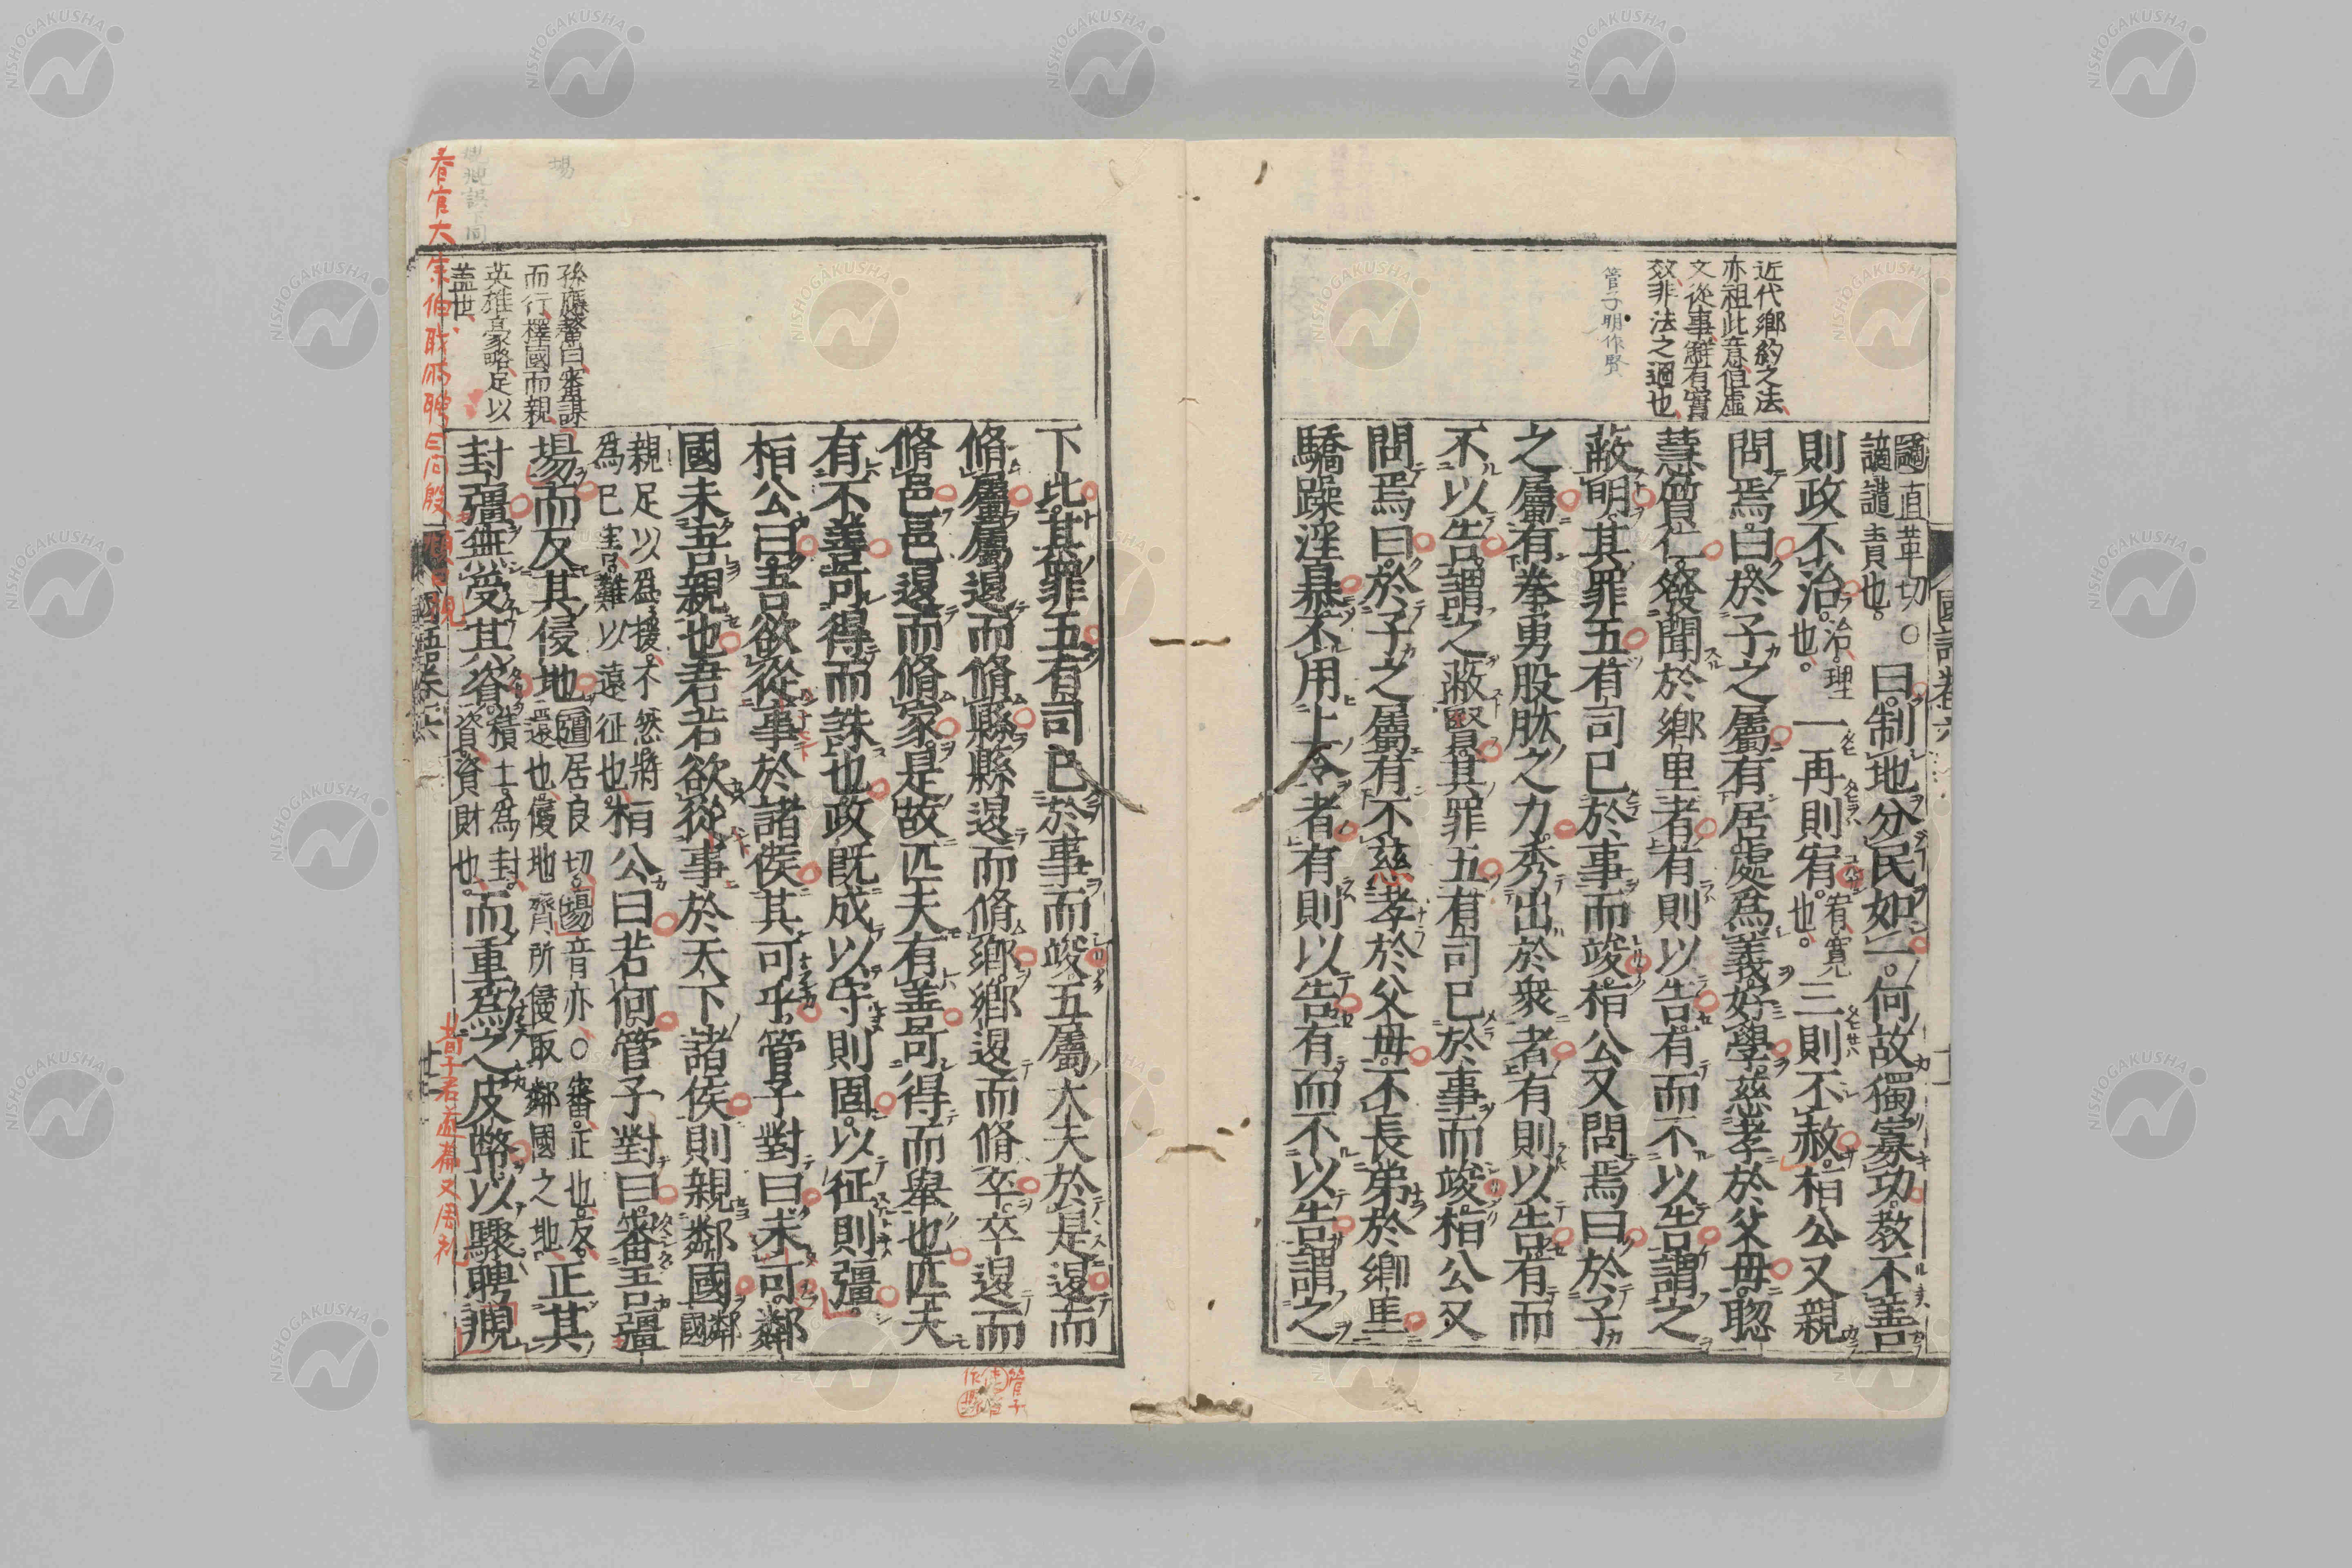 近代鄉約之法
亦祖此意但虛
文從事鮮有實
效非法之過也
管子明作賢
國語卷六
謫直革切○曰制地分民如一何故獨寡功教不善
謫譴責也
則政不治治理也一再則宥宥寬也三則不赦桓公又親
問焉曰於子之屬有居處爲義好學慈孝於父母聰
慧質仁發聞於鄉里者有則以告有而不以告謂之
蔽明其罪五有司已於事而竣桓公又問焉曰於子
之屬有拳勇股肱之力秀出於衆者有則以告有而
不以告謂之蔽賢其罪五有司已於事而竣桓公又
問焉曰於子之屬有不慈孝於父母不長弟於鄉里
驕躁淫暴不用上令者有則以告有而不以告謂之
下比其罪五有司已於事而竣五屬大夫於是退而
脩屬屬退而脩縣縣退而脩鄉鄉退而脩卒卒退而
脩邑邑退而脩家是故匹夫有善可得而舉也匹夫
有不善可得而誅也政既成以守則固以征則彊
桓公曰吾欲從事於諸侯其可乎管子對曰未可鄰
國未吾親也君若欲從事於天下諸侯則親鄰國鄰國
親足以爲援不然將
爲己害難以遠征也桓公曰若何管子對曰審吾疆
場而反其侵地疆居良切場音亦○審正也反
還也侵地齊所侵取鄰國之地正其
封疆無受其資積土爲封
資資財也而重爲之皮幣以驟聘覜
孫應鰲曰審謀
而行擇國而親
英雄豪略足以
蓋世
場
國語卷六
春官大宗伯職時聘曰問殷覜曰視
荀子君道篇又周礼
管子